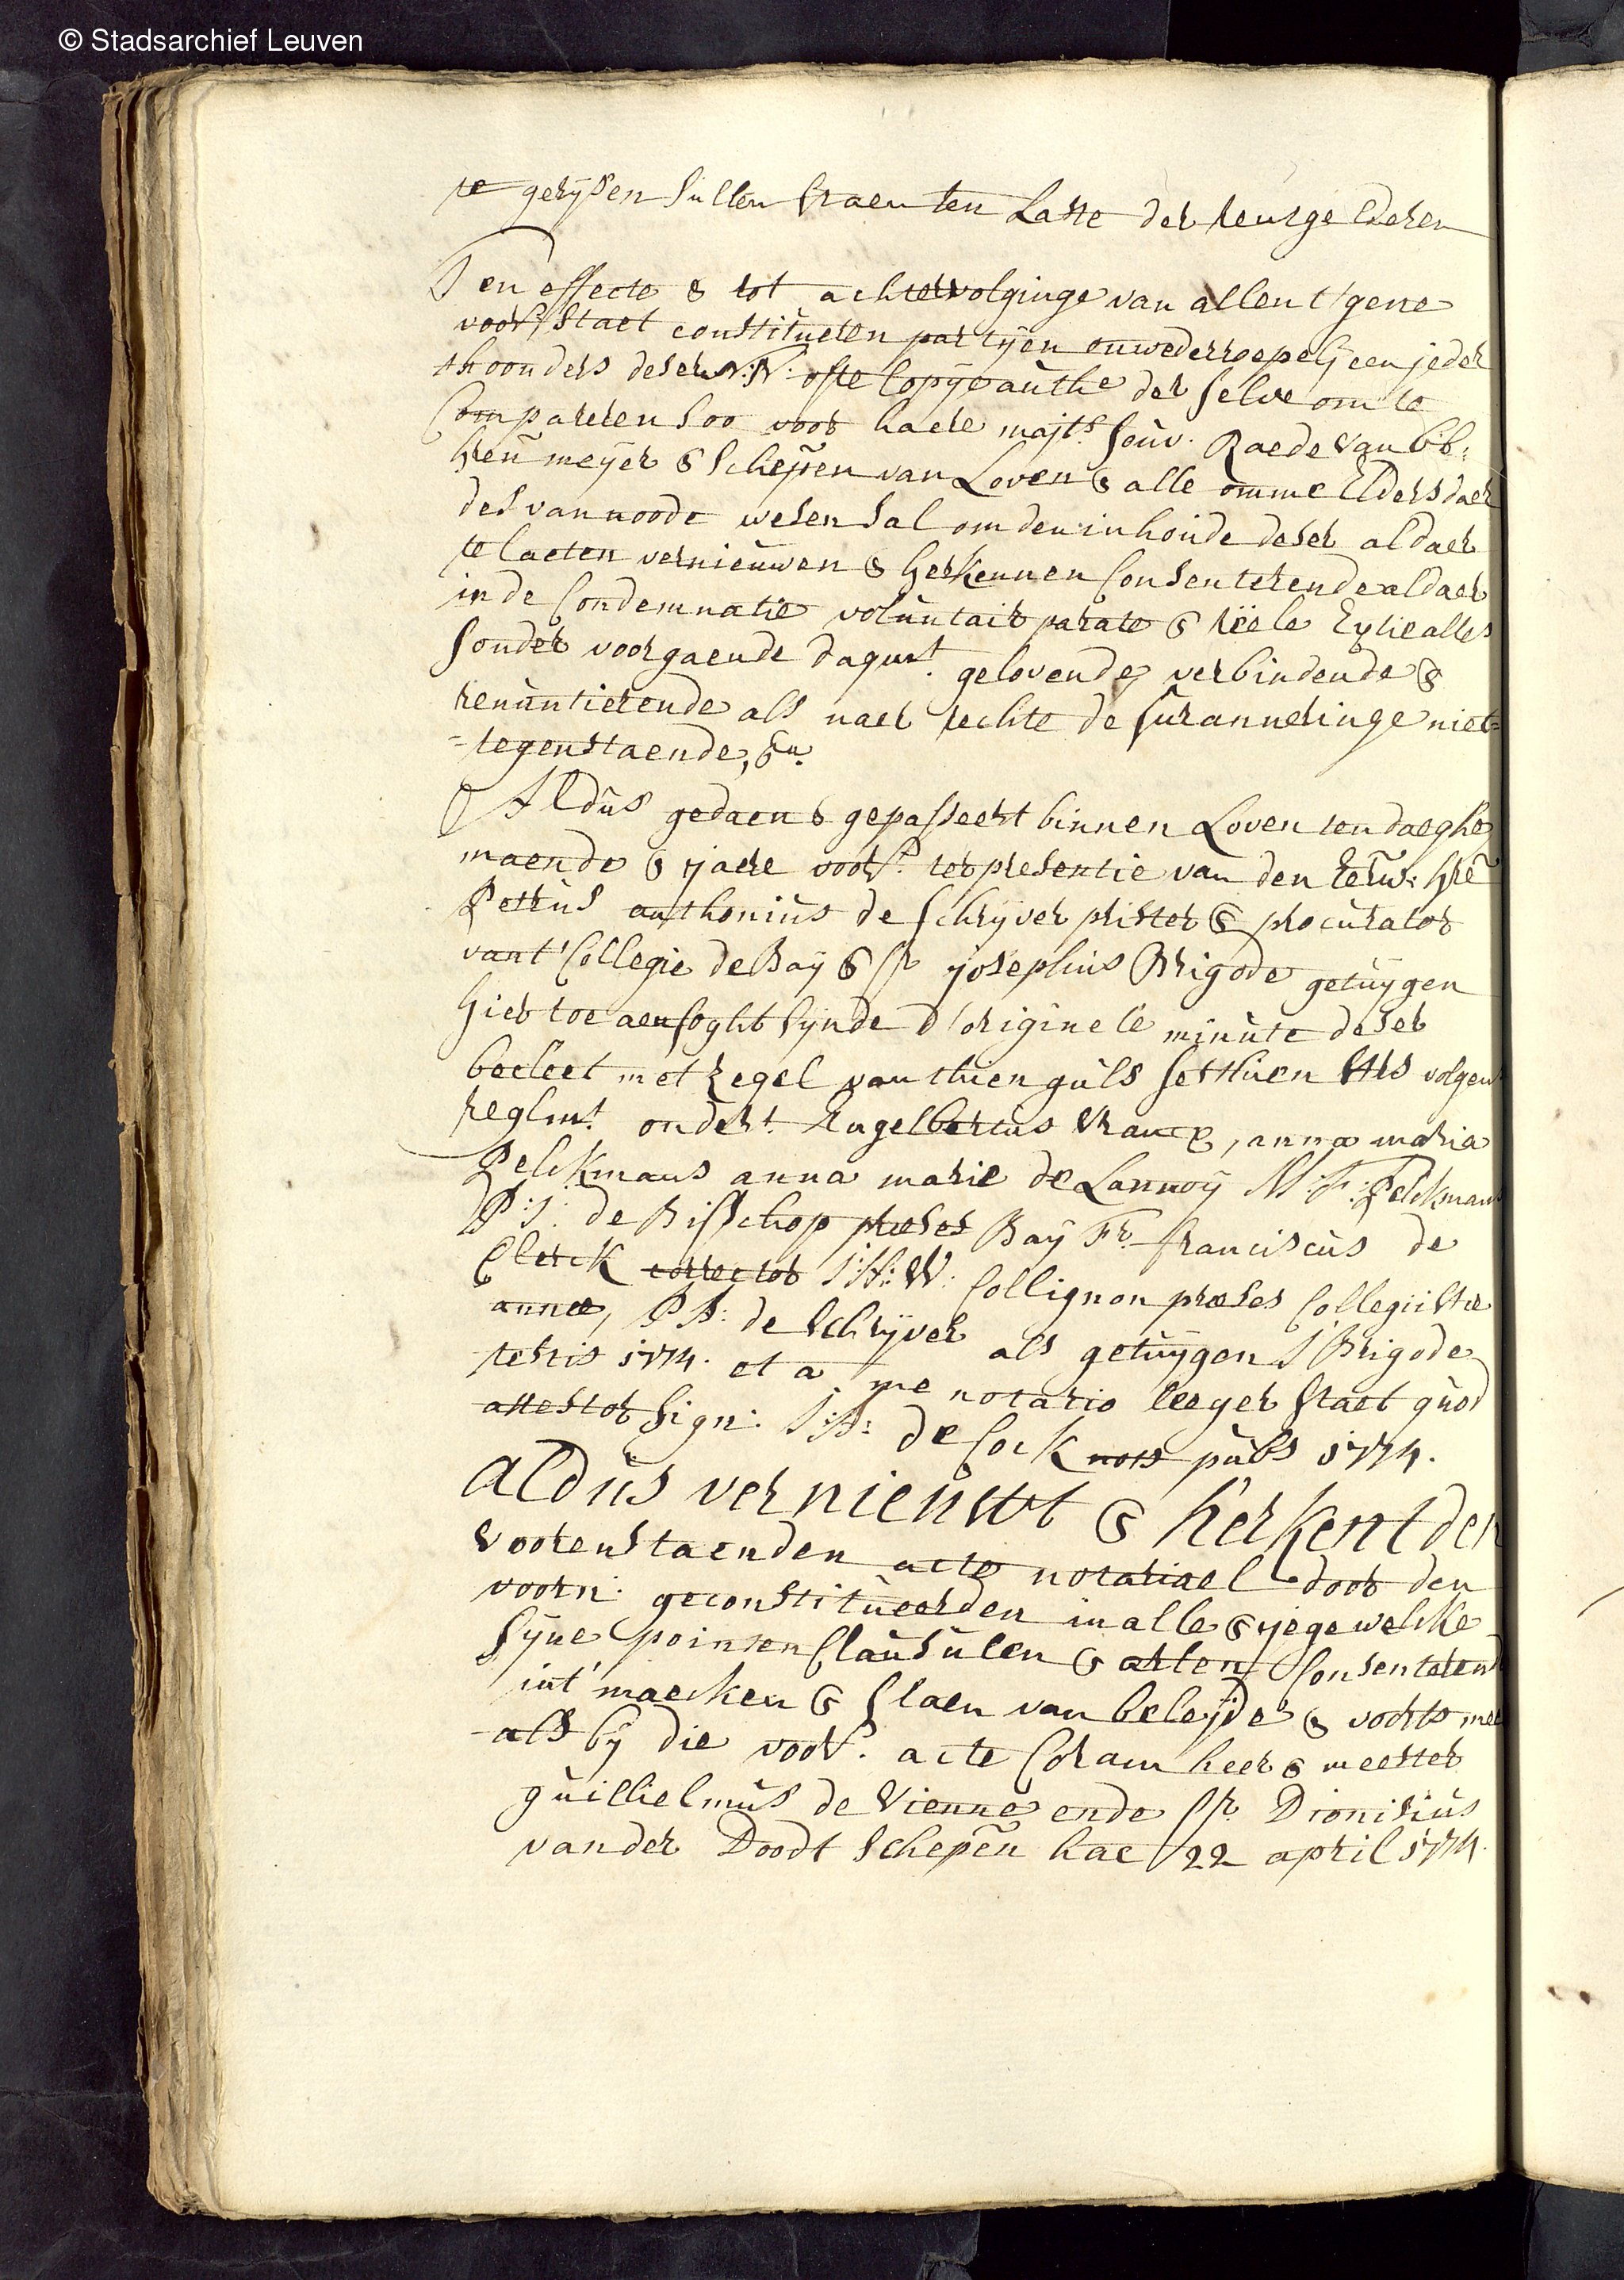 © Stadsarchief Leuven
te gerysen sullen staen ten Laste der rentgelderen
Ten effecte & tot achtervolginge van allen t'gene
voors: staet constitueren partyen onwederroepel: een jeder
thoonders deser N:N: ofte copye authe der selve om te
Compareren soo voor haere majts. souv. Raede van bb:
hren meyer & schepen van Loven & alle omme Elders daer
des van noode wesen sal om den inhoude deser aldaer
te laeten vernieuwen & herkennen Consenterende aldaer
in de Condemnatie voluntair parate & reële Extie alles
sonder voorgaende dagmt. gelovende, verbindende &
renuntierende als naer rechte de surannelinge niet=
=tegenstaende, &a.
Aldus gedaen & gepasseert binnen Loven ten daeghe
maende & jaere voors. ter presentie van den eerw: hre
Petrus anthonius de schryver prister & procurator
vant' Collegie de Bay & sr. josephus Brigode getuygen
hier toe aensoght synde d'originele minute deser
becleet met zegel van thien guls sesthien strs volgens
reglmt. ondert. Engelbertus Vranx, anna maria
Pelckmans anna marie de Lannoy M: F: Pelckmans
P: J: de Bisschop preses Bay Fr. franciscus de
Clerck corrector J:H:W: Collignon præses Collegii Stæ
annæ, P A: de Schryver als getuygen J Brigode
testis 1774. et a me notario leeger staet quod
attestor sign: J:A: de Cock nots pubs 1774.
Aldus vernieuwt & herkent den
voorenstaenden acte notariael door den
voorn: geconstitueerden in alle & jegewelcke
syne pointen Clausulen & arten Consenterende
int' maecken & slaen van beleyde & voorts meer
als by die voors. acte Coram heer & meester
guillielmus de Vienne ende sr. Dionisius
vander Doodt schepen hac 22 april 1774.